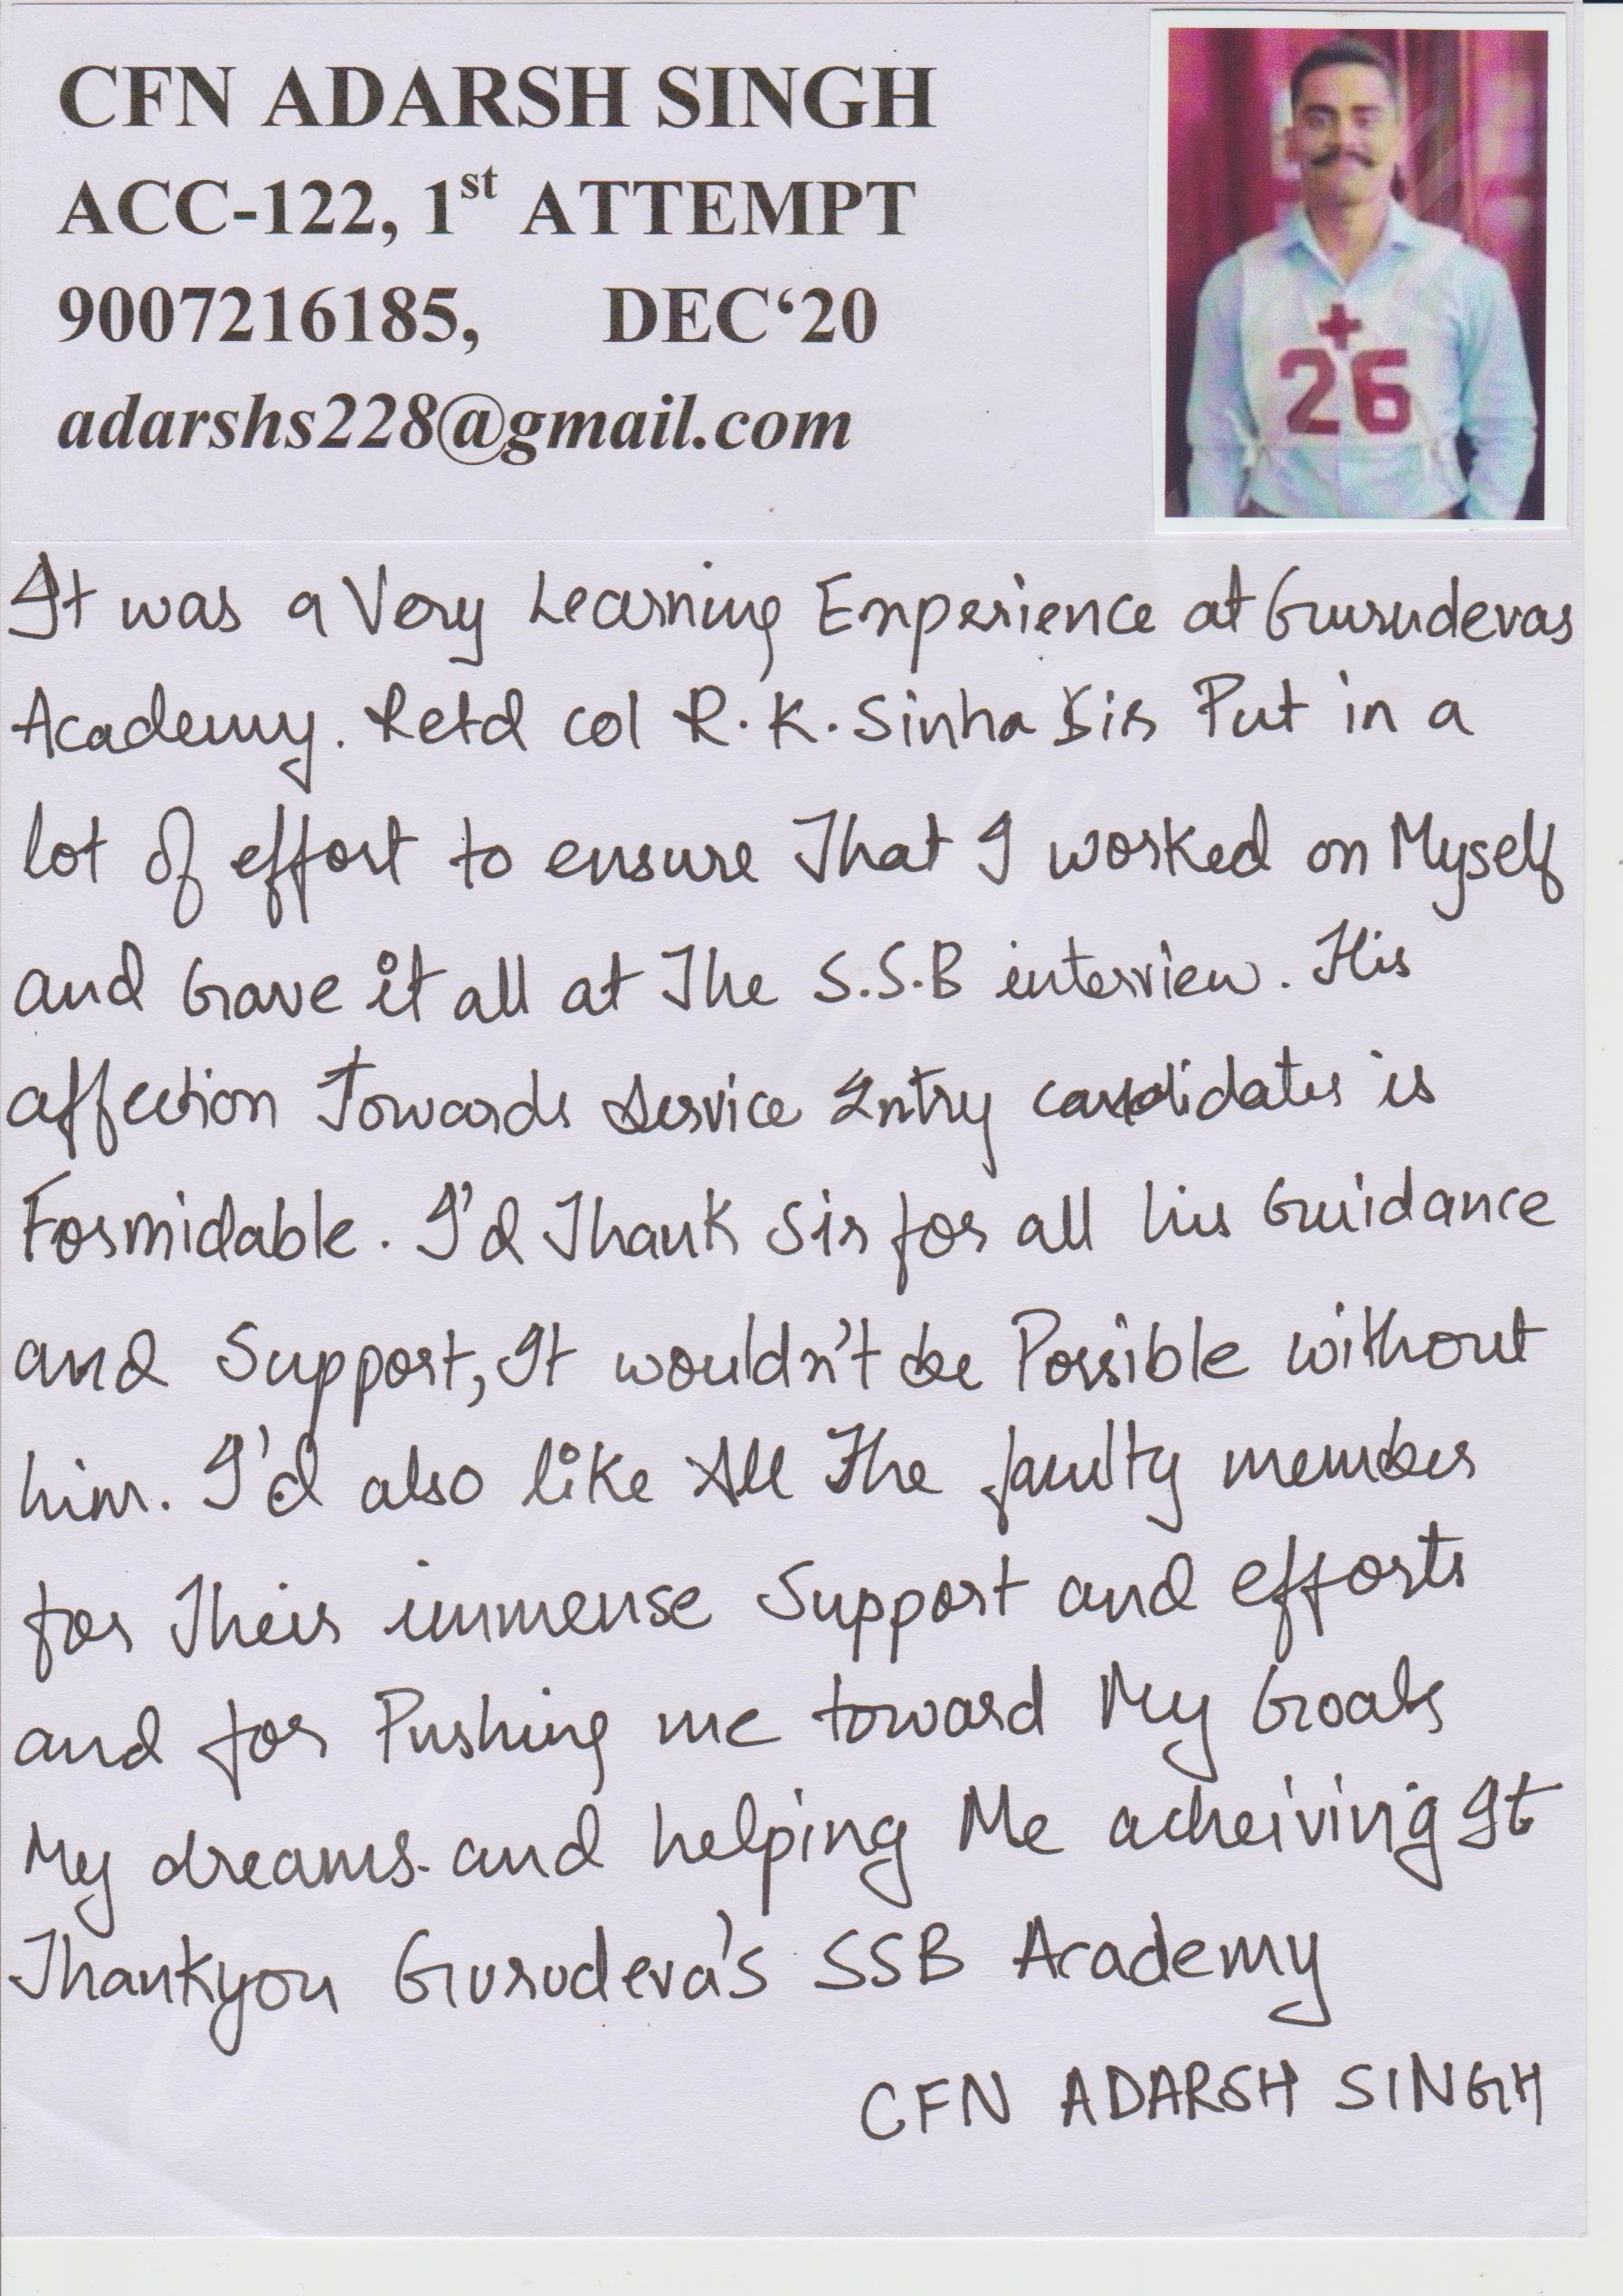 CFN ADARSH SINGH
ACC-122, 1st ATTEMPT
9007216185, DEC‘20
adarshs228@gmail.com
+
26
It was a Very Learning Experience at Gurudevas
Academy. Retd col R.K.Sinha Sir Put in a
lot of effort to ensure That I worked on Myself
and Gave it all at The S.S.B interview. His
affection Towards Service Entry candidates is
Formidable. I'd Thank Sir for all his Guidance
and Support, It wouldn't be Possible without
him. I'd also like All The faculty member
for Their immense Support and efforts
and for Pushing me toward My Goals
My dreams. and helping Me acheiving It
Thankyou Gurudeva's SSB Academy
CFN ADARSH SINGH